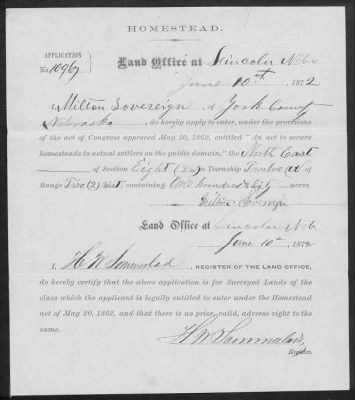 HOMESTEAD.
APPLICATION
No. 10967
Land Office at Lincoln Neb
June 10th, 1872
I, Milton Sovereign, of York County
Nebraska, do hereby apply to enter, under the provisions
of the act of Congress approved May 20, 1862, entitled "An act to secure
homesteads to actual settlers on the public domain," the North East
of Section Eight (8) in Township Twelve of
Range Two (2) West, containing One hundred acres.
Milton Sovereign
Land Office at Lincoln Neb
June 10th, 1872
I, H W Sommerlad, REGISTER OF THE LAND OFFICE,
do hereby certify that the above application is for Surveyed Lands of the
class which the applicant is legally entitled to enter under the Homestead
act of May 20, 1862, and that there is no prior, valid, adverse right to the
same.
H W Sommerlad,
Register.